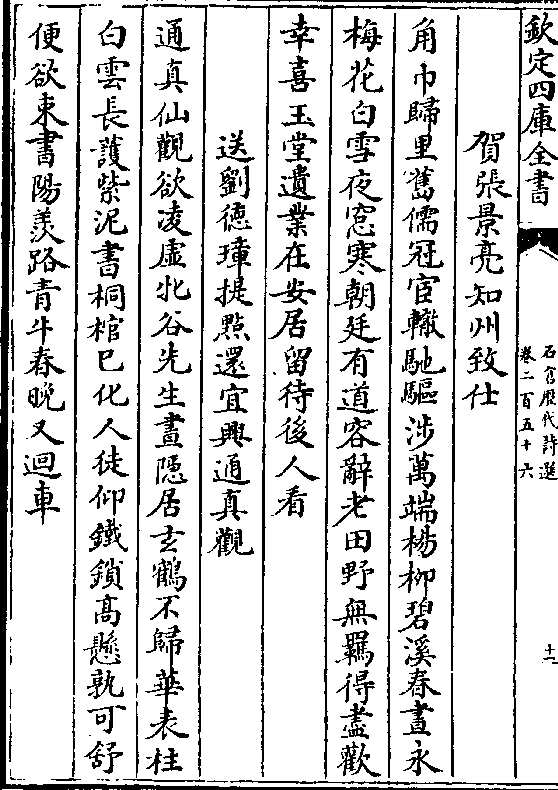 欽定四庫全書
石倉歷代詩選
卷二百五十六
十一
賀張景亮知州致仕
角巾歸里舊儒冠宦轍馳驅涉萬端楊柳碧溪春晝永
梅花白雪夜窓寒朝廷有道容辭老田野無羈得盡歡
幸喜玉堂遺業在安居留待後人看
送劉德璋提點還宜興通真觀
通真仙觀欲凌虛北谷先生晝隠居玄鶴不歸華表柱
白雲長護紫泥書桐棺已化人徒仰鐵鎖髙懸孰可舒
便欲束書陽羨路青牛春晚又迴車